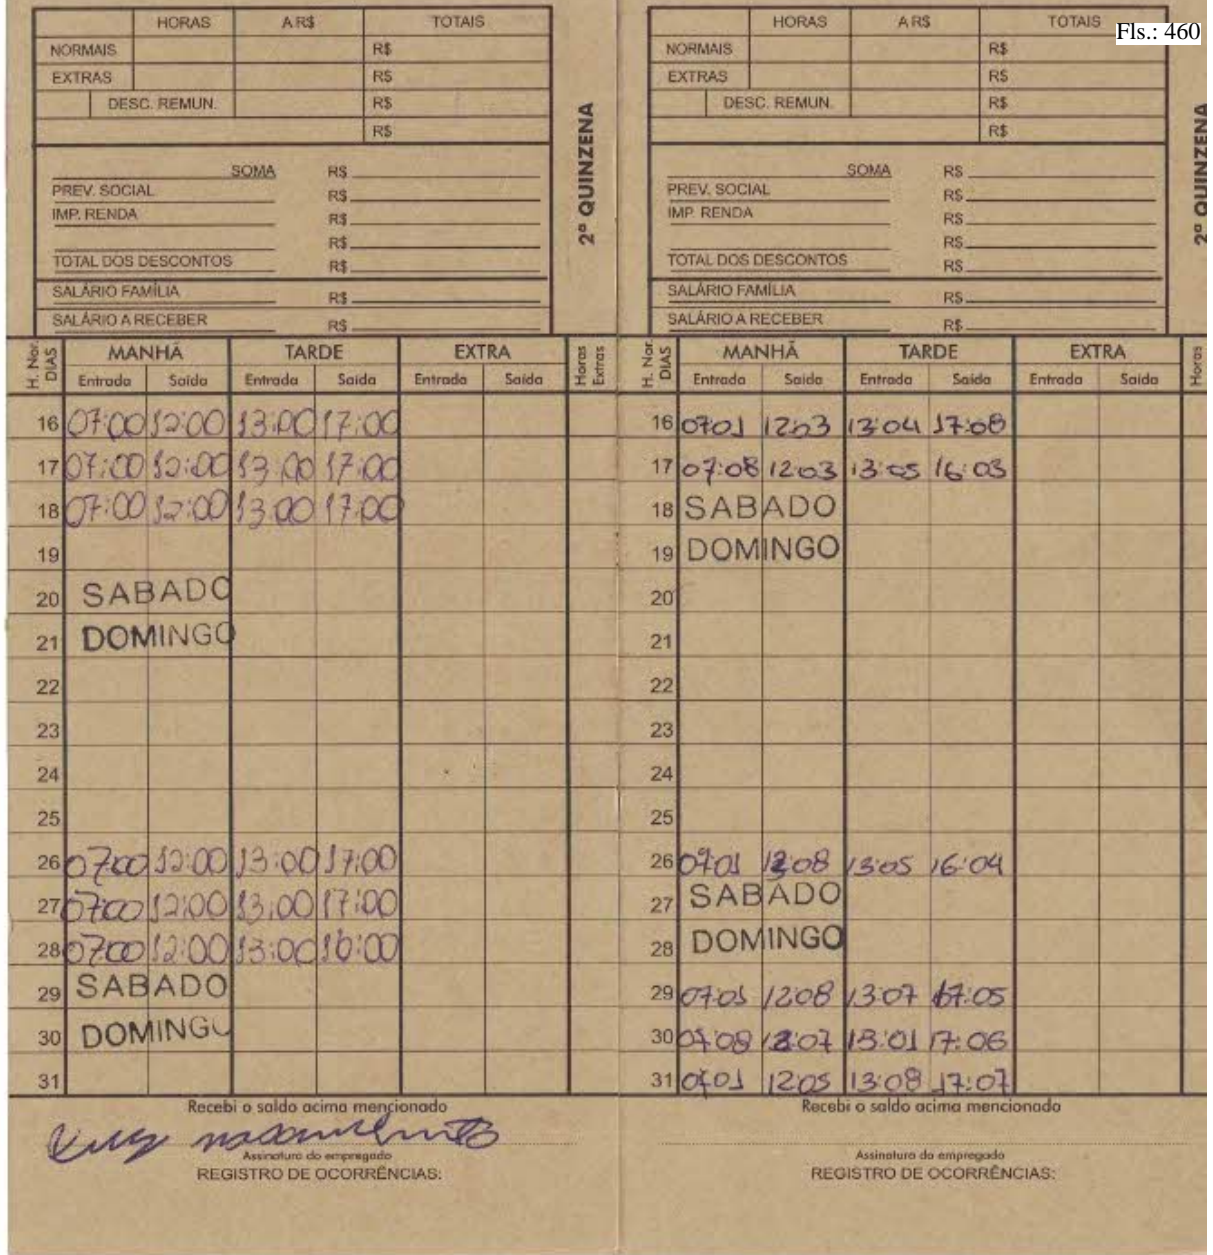 Fls.: 460
HORAS A R$ TOTAIS
NORMAIS R$
EXTRAS R$
DESC. REMUN. R$
R$
SOMA R$
PREV. SOCIAL R$
IMP. RENDA R$
R$
TOTAL DOS DESCONTOS R$
SALÁRIO FAMÍLIA R$
SALÁRIO A RECEBER R$
2ª QUINZENA
H. Nor. DIAS MANHÃ TARDE EXTRA Horas Extras
Entrada Saída Entrada Saída Entrada Saída
16 07:00 12:00 13:00 17:00
17 07:00 12:00 13:00 17:00
18 07:00 12:00 13:00 17:00
19
20 SABADO
21 DOMINGO
22
23
24
25
26 07:00 12:00 13:00 17:00
27 07:00 12:00 13:00 17:00
28 07:00 12:00 13:00 16:00
29 SABADO
30 DOMINGO
31
Recebi o saldo acima mencionado
nascimento
Assinatura do empregado
REGISTRO DE OCORRÊNCIAS:
HORAS A R$ TOTAIS
NORMAIS R$
EXTRAS R$
DESC. REMUN. R$
R$
SOMA R$
PREV. SOCIAL R$
IMP. RENDA R$
R$
TOTAL DOS DESCONTOS R$
SALÁRIO FAMÍLIA R$
SALÁRIO A RECEBER R$
2ª QUINZENA
H. Nor. DIAS MANHÃ TARDE EXTRA Horas
Entrada Saída Entrada Saída Entrada Saída
16 07:01 12:03 13:04 17:08
17 07:08 12:03 13:05 16:03
18 SABADO
19 DOMINGO
20
21
22
23
24
25
26 07:01 12:08 13:05 16:04
27 SABADO
28 DOMINGO
29 07:01 12:08 13:07 17:05
30 07:08 12:07 13:01 17:06
31 07:01 12:05 13:08 17:07
Recebi o saldo acima mencionado
Assinatura do empregado
REGISTRO DE OCORRÊNCIAS: